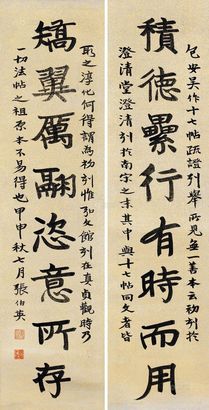 包安吳作十七帖疏證列舉所見無一善本云初刻於
積德纍行有時而用
澄清堂澄清刻於南宋之末其中與十七帖同文者皆
取之淳化何得謂為初刻惟弘文館刻在貞觀時乃
矯翼厲翮恣意所存
一切法帖之祖原本不易得也甲申秋七月張伯英